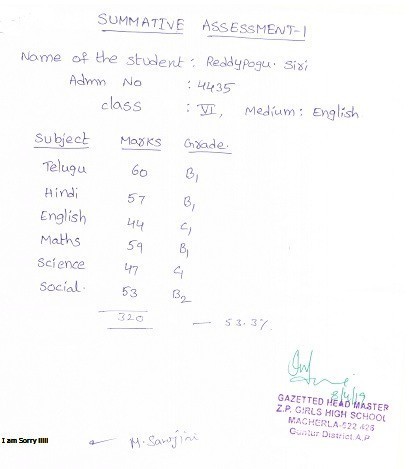 SUMMATIVE ASSESSMENT-1
Name of the student : Reddypogu. Siri
Admn No : 4435
class : VI, Medium : English
Subject Marks Grade.
Telugu 60 B1
Hindi 57 B1
English 44 C1
Maths 59 B1
Science 47 C1
Social. 53 B2
320 — 53.3%
8/4/19
GAZETTED HEAD MASTER
Z.P. GIRLS HIGH SCHOOL
MACHERLA-522 426
Guntur District.A.P
I am Sorry !!!!!
M. Sarojini